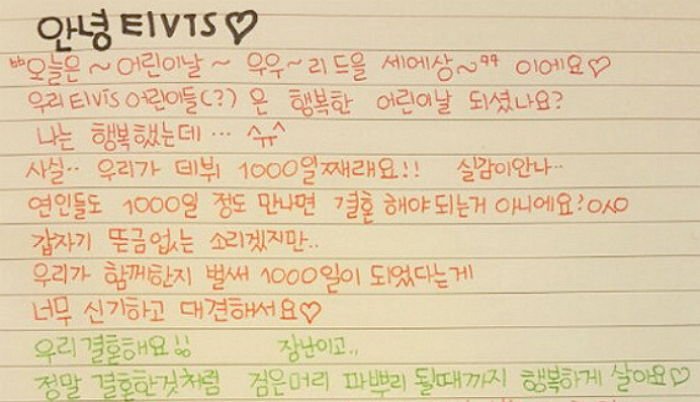 안녕 ELVIS♡
"오늘은~어린이날~ 우우~리드을 세에상~" 이에요♡
우리 Elvis 어린이들(?) 은 행복한 어린이날 되셨나요?
나는 행복했는데… ^ㅠ^
사실.. 우리가 데뷔 1000일째래요!! 실감이안나..
연인들도 1000일 정도 만나면 결혼 해야 되는거 아니에요?ㅇㅅㅇ
갑자기 뜬금없는 소리겠지만..
우리가 함께한지 벌써 1000일이 되었다는게
너무 신기하고 대견해서요♡
우리결혼해요!! 장난이고..
정말 결혼한것처럼 검은머리 파뿌리 될때까지 행복하게 살아요♡